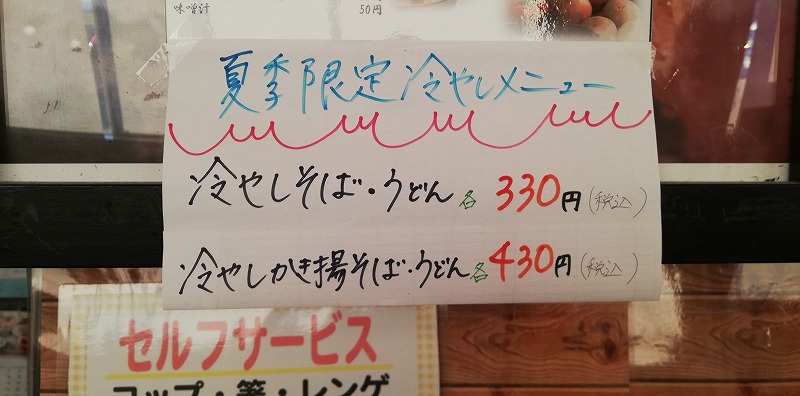 味噌汁 50円
夏季限定冷やしメニュー
冷やしそば・うどん 各 330円(税込)
冷やしかき揚そば・うどん 各 430円(税込)
セルフサービス
コップ・箸・レンゲ